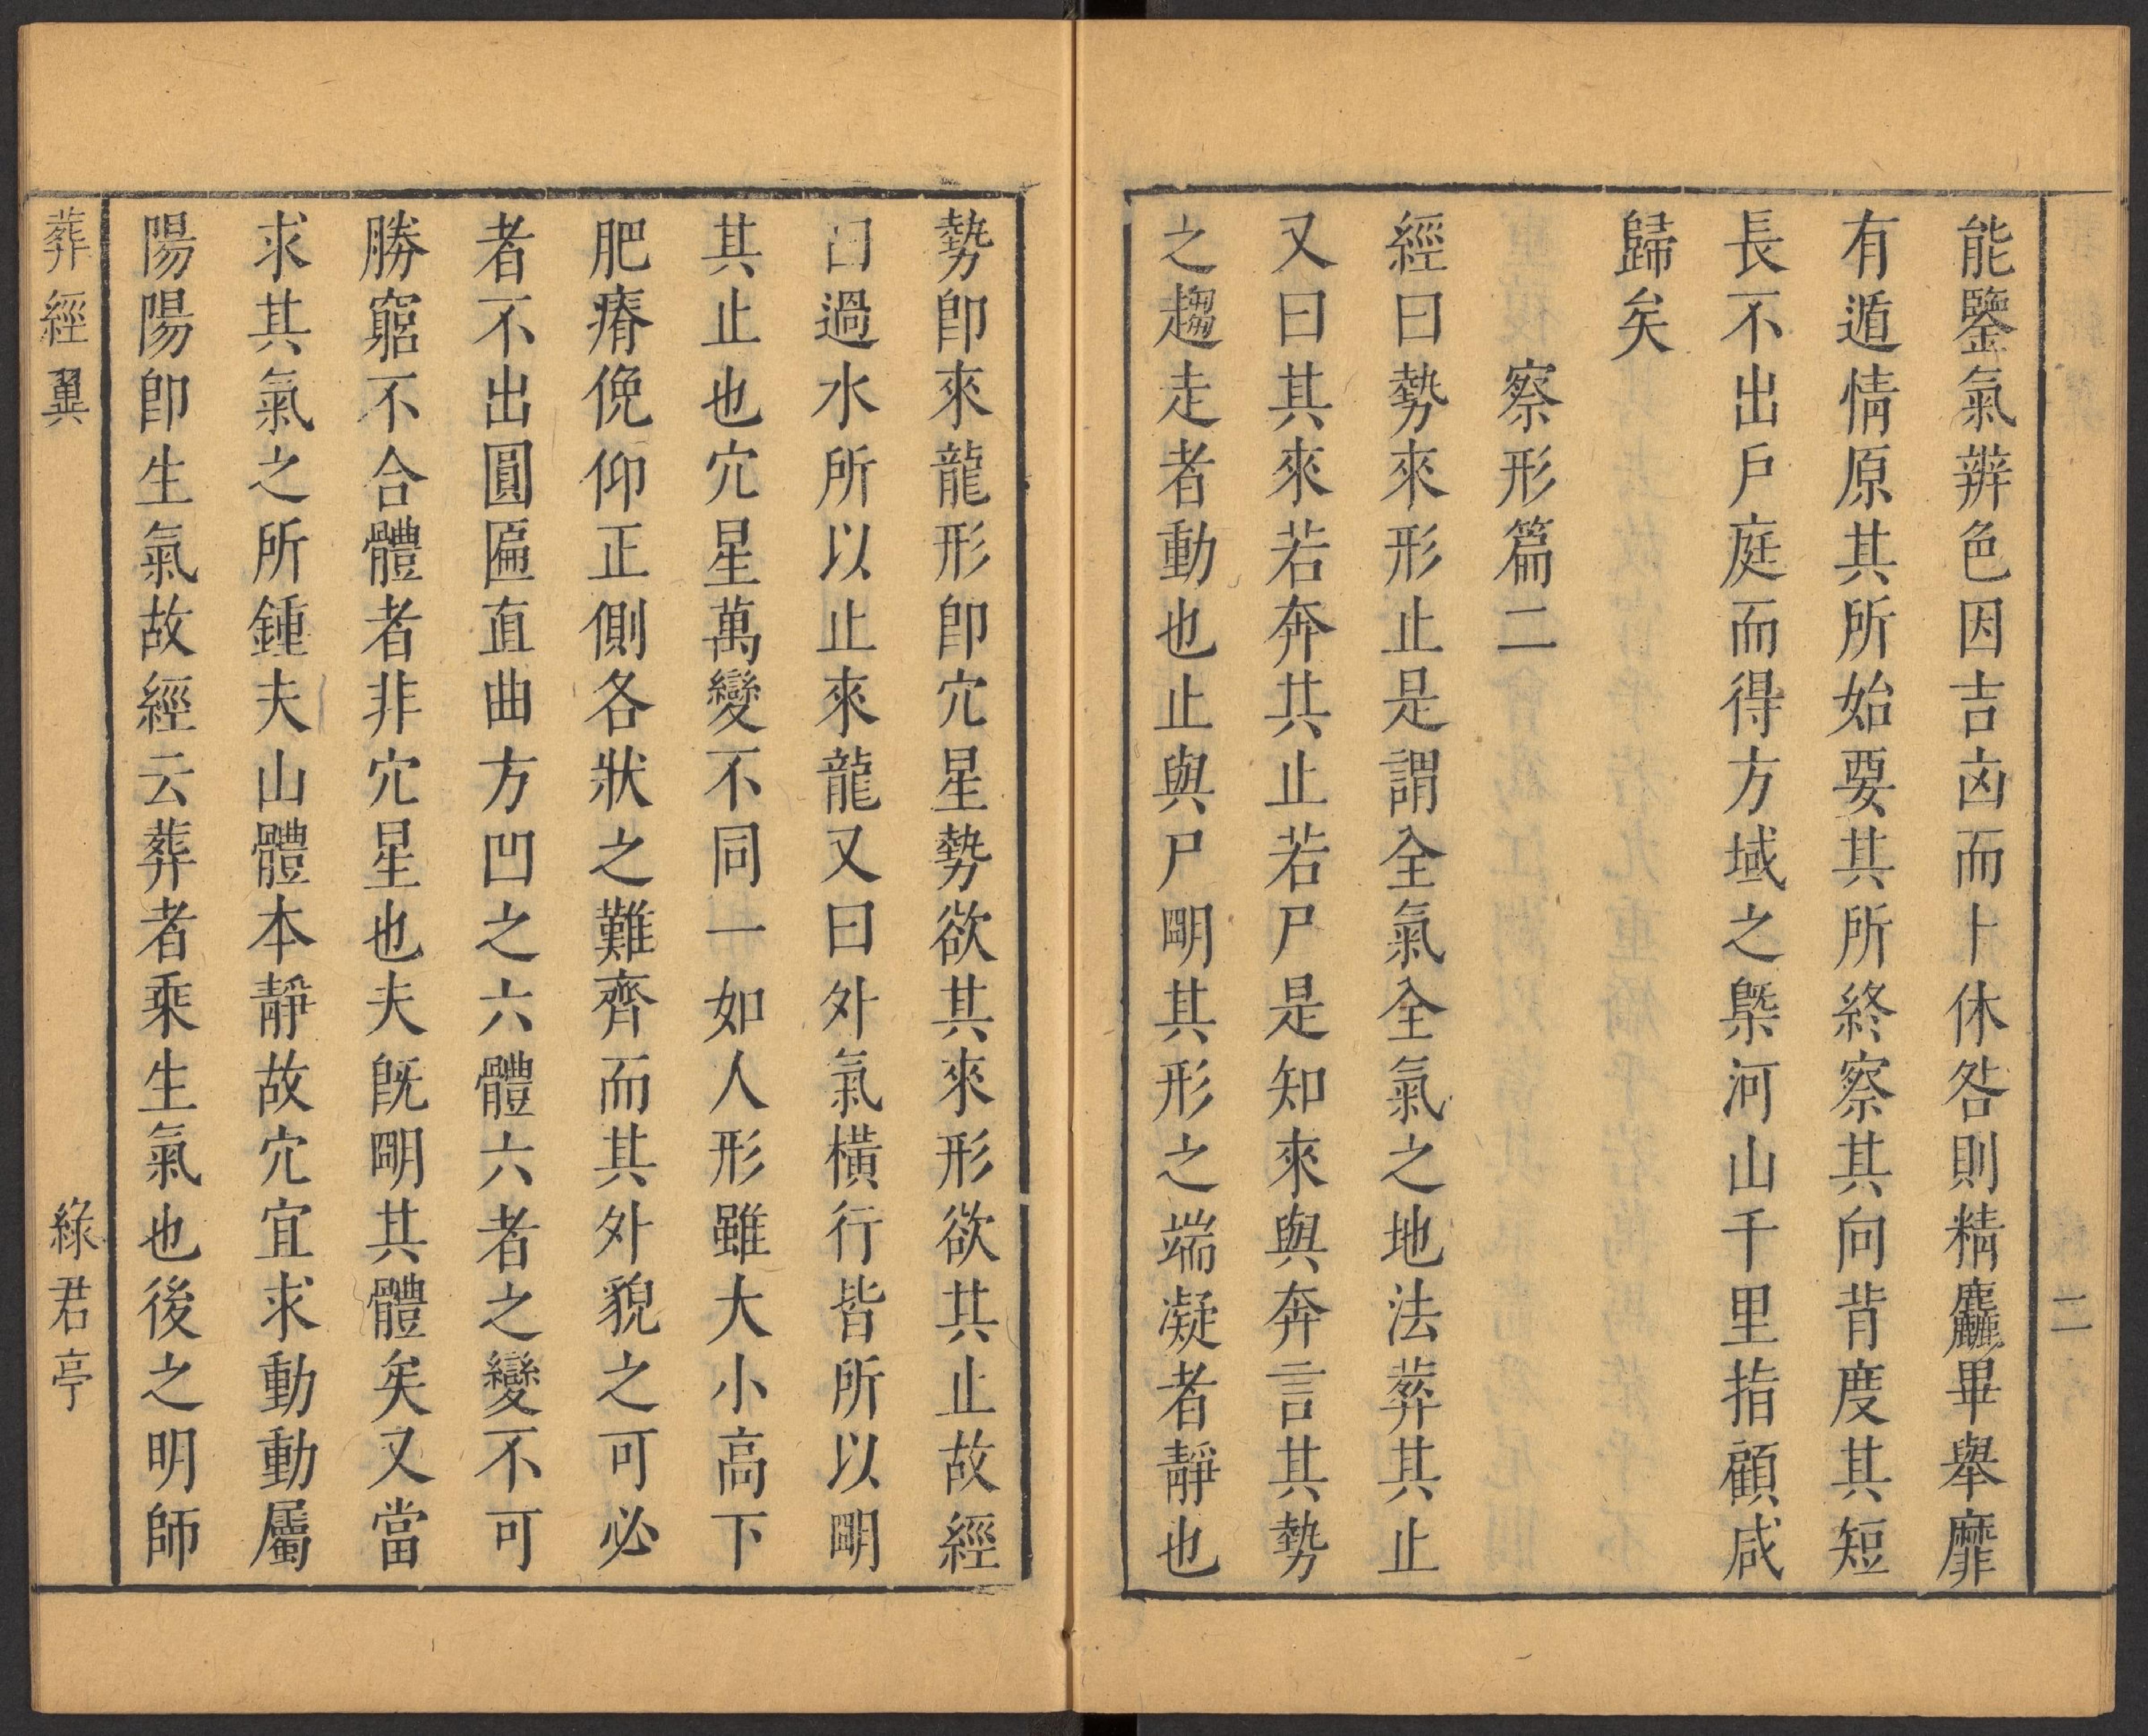 二
能鑒氣辨色因吉凶而卜休咎則精麤畢舉靡
有遁情原其所始要其所終察其向背度其短
長不出戶庭而得方域之槩河山千里指顧咸
歸矣
察形篇二
經曰勢來形止是謂全氣全氣之地法葬其止
又曰其來若奔其止若尸是知來與奔言其勢
之趨走者動也止與尸朙其形之端凝者靜也
勢卽來龍形卽穴星勢欲其來形欲其止故經
曰過水所以止來龍又曰外氣橫行皆所以朙
其止也穴星萬變不同一如人形雖大小高下
肥瘠俛仰正側各狀之難齊而其外貌之可必
者不出圓匾直曲方凹之六體六者之變不可
勝窮不合體者非穴星也夫旣朙其體矣又當
求其氣之所鍾夫山體本靜故穴宜求動動屬
陽陽卽生氣故經云葬者乘生氣也後之明師
葬經翼
綠君亭